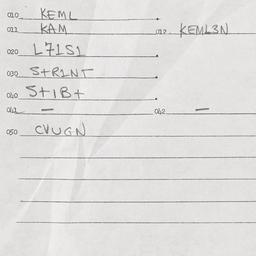 010 KEML
011 KAM 012 KEML3N
020 L71S1
030 S+R1NT
040 S+IB+
041 — 042 —
050 CVUGN